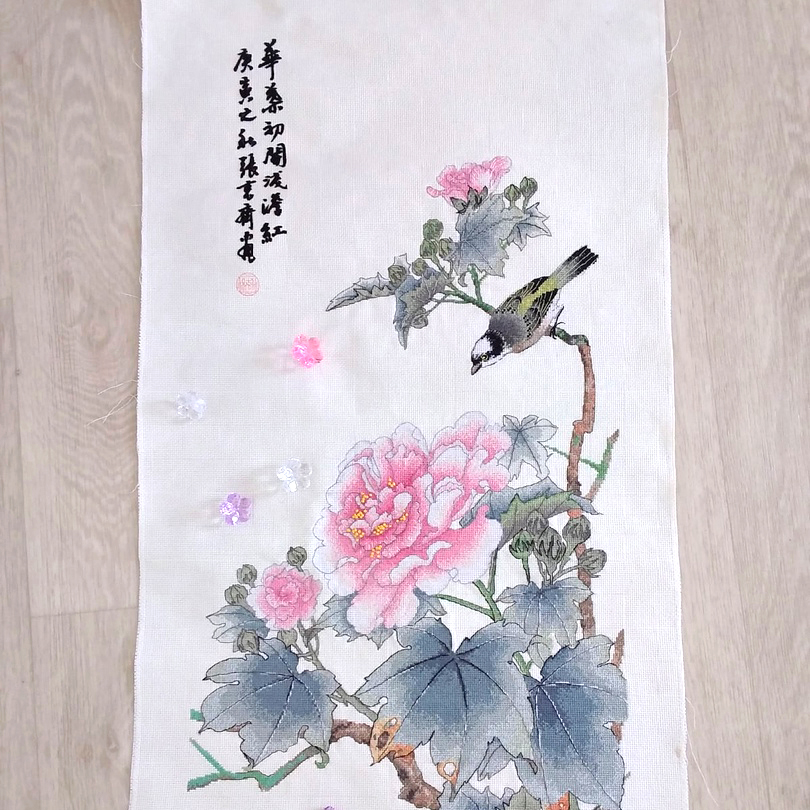 華蘂初開淺澹紅
庚寅之秋張書齋畫